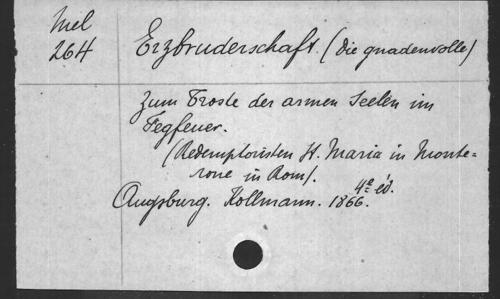 Mel
264
Erzbruderschaft. (die gnadenvolle)
zum Troste der armen Seelen im
Fegfeuer.
(Redemptoristen St. Maria in Monte=
rone in Rom).
4e éd.
Augsburg. Kollmann. 1866.